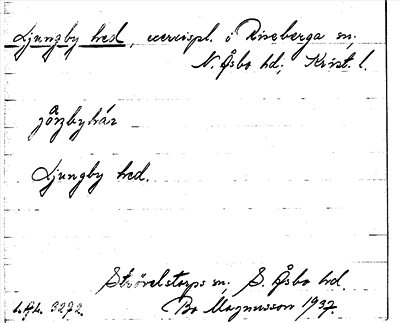 Ljungby hed, exercispl. i Riseberga sn,
N. Åsbo hd; Krist. l.
Ljungby hed.
Strövelstorps sn, S. Åsbo hd.
Bo Magnusson 1937.
3272.